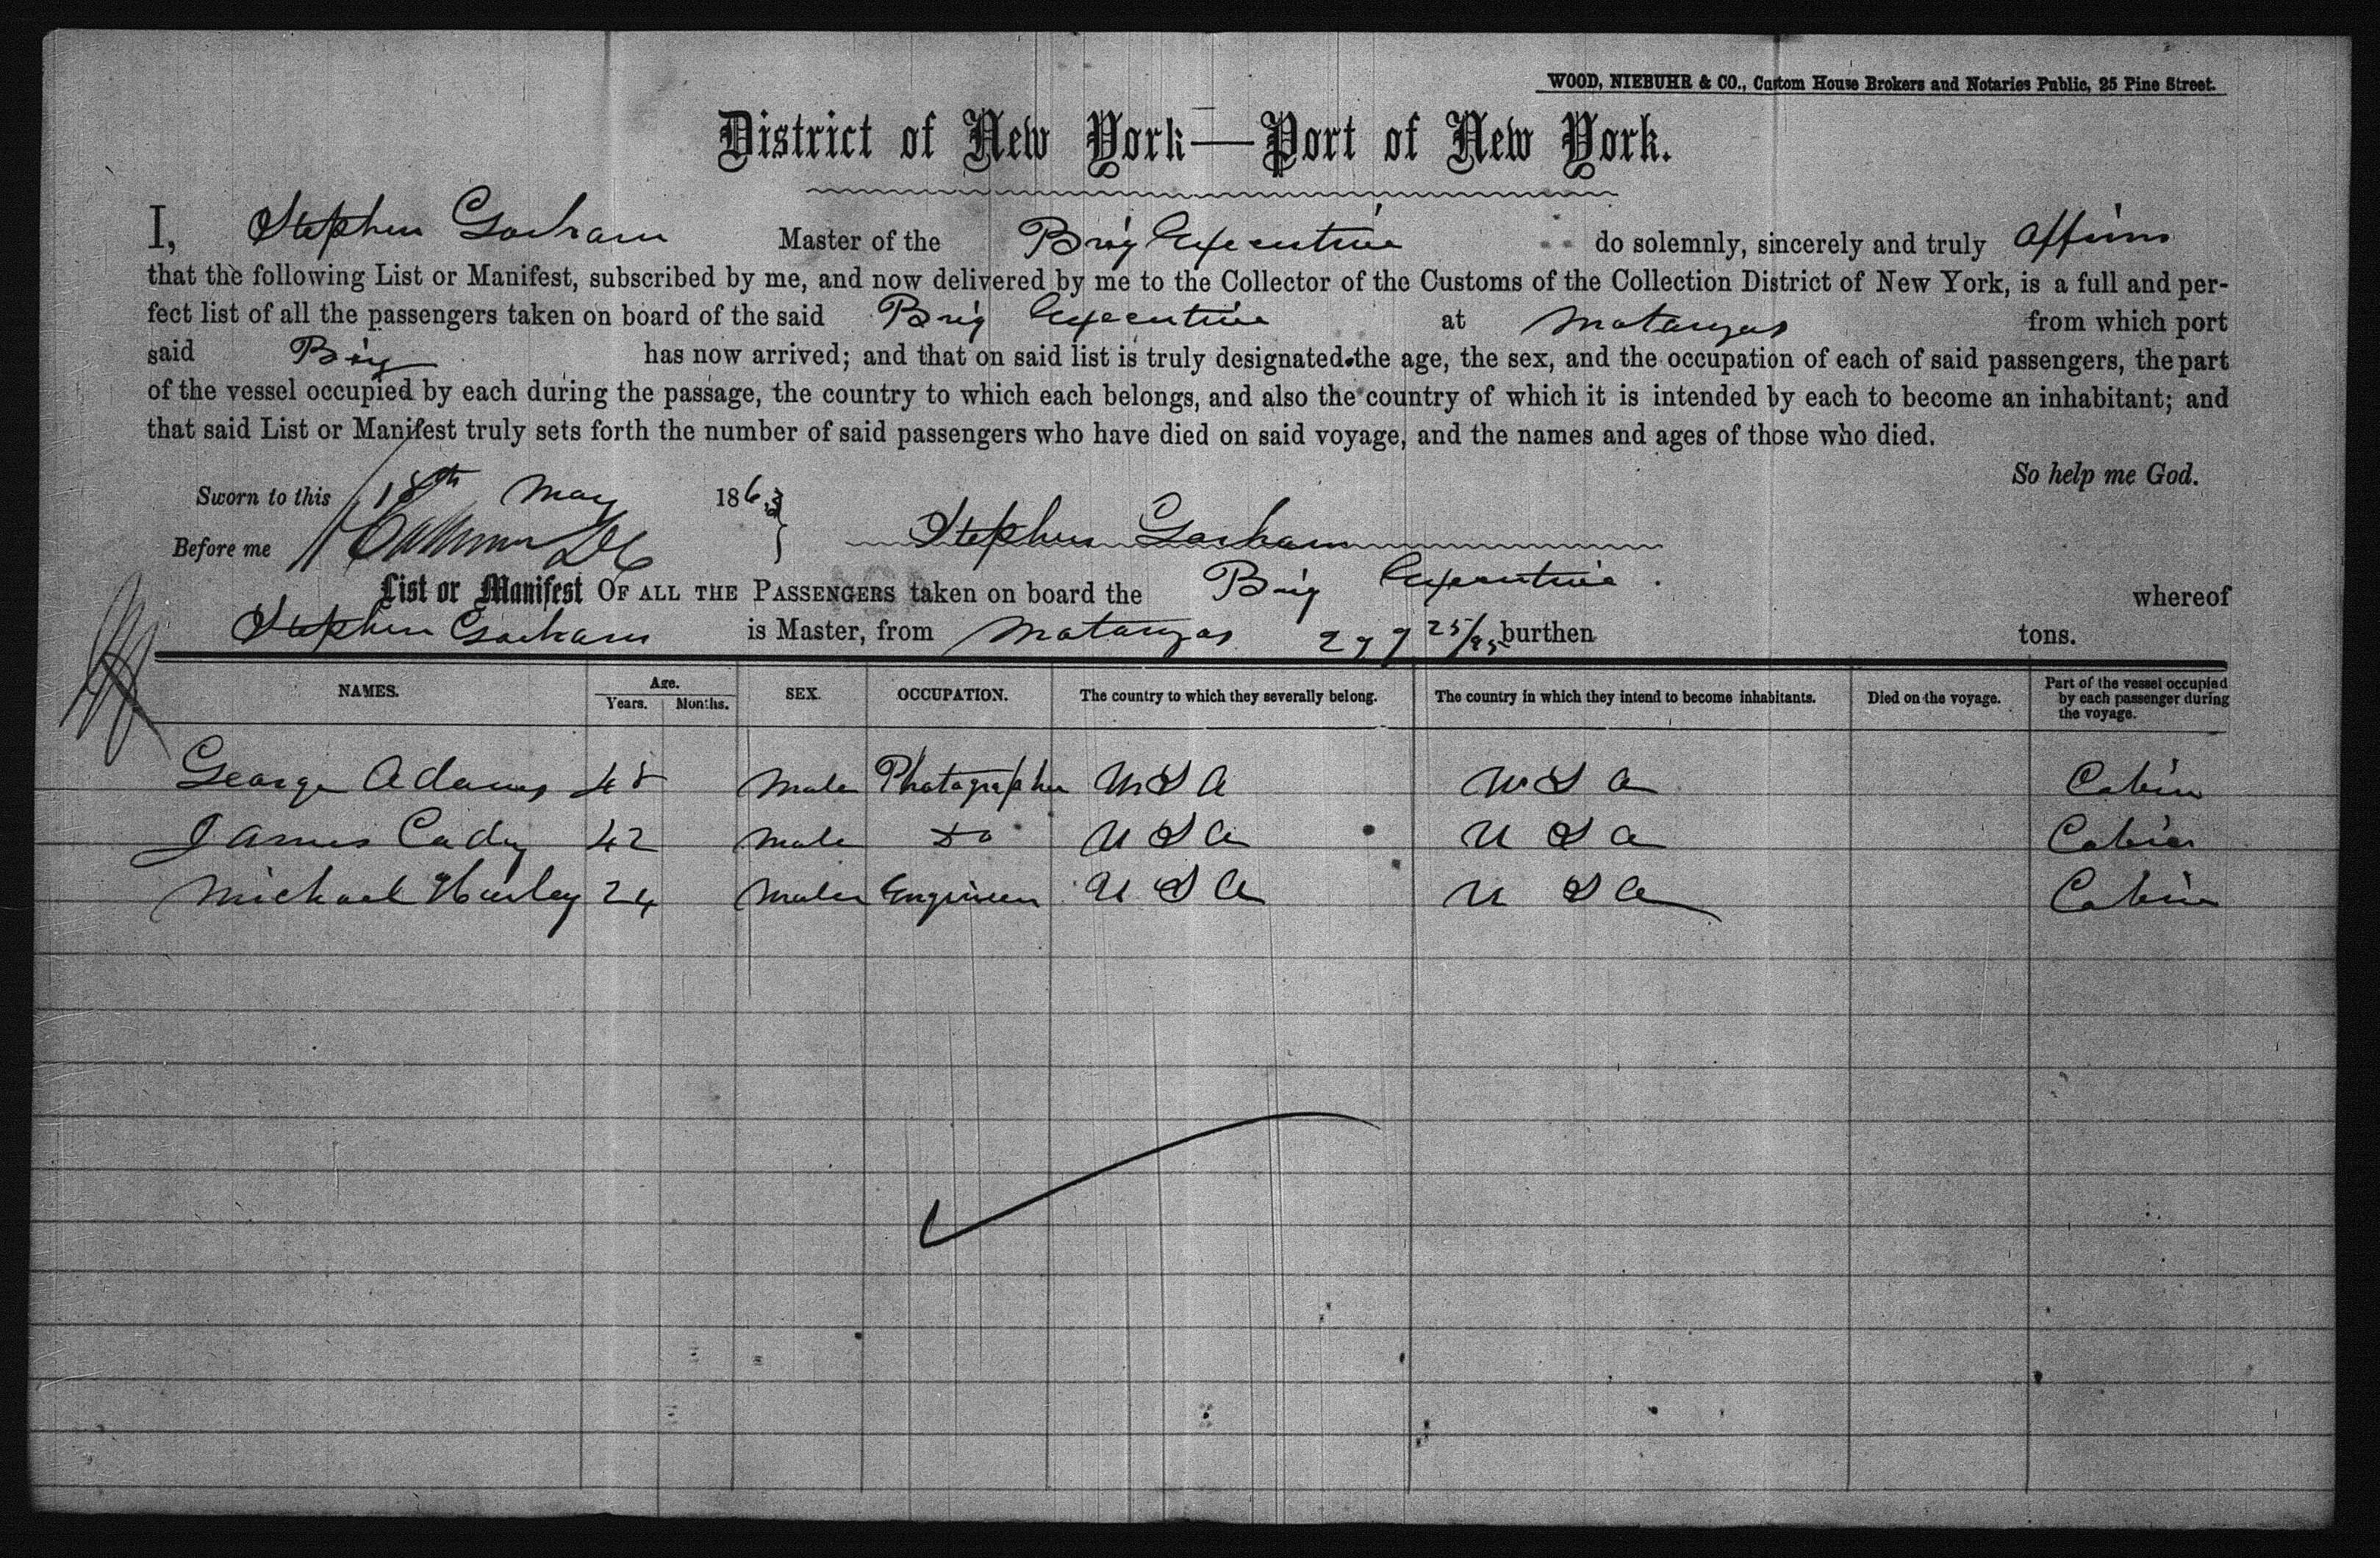 WOOD, NIEBUHR & CO., Custom House Brokers and Notaries Public, 25 Pine Street.
District of New York—Port of New York.
I, Stephen Gorham Master of the Brig Executive do solemnly, sincerely and truly affirm
that the following List or Manifest, subscribed by me, and now delivered by me to the Collector of the Customs of the Collection District of New York, is a full and per-
fect list of all the passengers taken on board of the said Brig Executive at Matanzas from which port
said Brig has now arrived; and that on said list is truly designated the age, the sex, and the occupation of each of said passengers, the part
of the vessel occupied by each during the passage, the country to which each belongs, and also the country of which it is intended by each to become an inhabitant; and
that said List or Manifest truly sets forth the number of said passengers who have died on said voyage, and the names and ages of those who died.
So help me God.
Sworn to this 18th May 1863
Before me
Stephen Gorham
List or Manifest OF ALL THE PASSENGERS taken on board the Brig Executive whereof
Stephen Gorham is Master, from Matanzas 299 25/95 burthen tons.
NAMES. Age. Years. Months. SEX. OCCUPATION. The country to which they severally belong. The country in which they intend to become inhabitants. Died on the voyage. Part of the vessel occupied by each passenger during the voyage.
George Adams 48 Male Photographer U S A U S A Cabin
James Cady 42 Male Do U S A U S A Cabin
Michael Hurley 24 Male Engineer U S A U S A Cabin